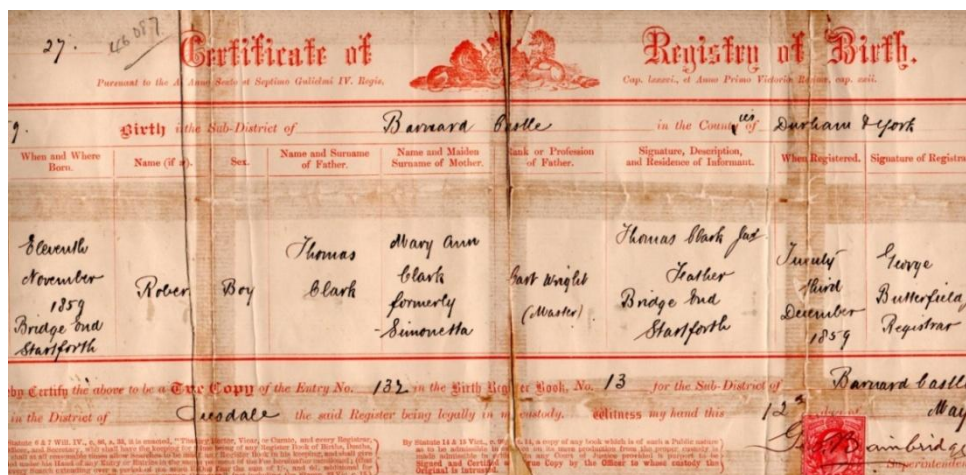 27. 46087
Certificate of Registry of Birth.
Pursuant to the A Anno Sexto et Septimo Gulielmi IV. Regis, Cap. lxxxvi., et Anno Primo Victoriæ Reginæ, cap. xxii.
9. Birth i the Sub-District of Barnard Castle in the Count ies of Durham & York
When and Where Born.
Name (if
Sex.
Name and Surname of Father.
Name and Maiden Surname of Mother.
ank or Profession of Father.
Signature, Description, and Residence of Informant.
When Registered.
Signature of Registra
Eleventh
November
1859
Bridge End
Startforth
Rober
Boy
Thomas
Clark
Mary Ann
Clark
formerly
Simonetta
Cart Wright
(Master)
Thomas Clark
Feather
Bridge End
Startforth
Twenty
third
December
1859
George
Butterfield
Registrar
by Certify the above to be a True Copy of the Entry No. 132 in the Birth Register Book, No. 13 for the Sub-District of Barnard Castle
in the District of Teesdale the said Register being legally in my custody. Witness my hand this 12 May
Bainbridge
Superintende